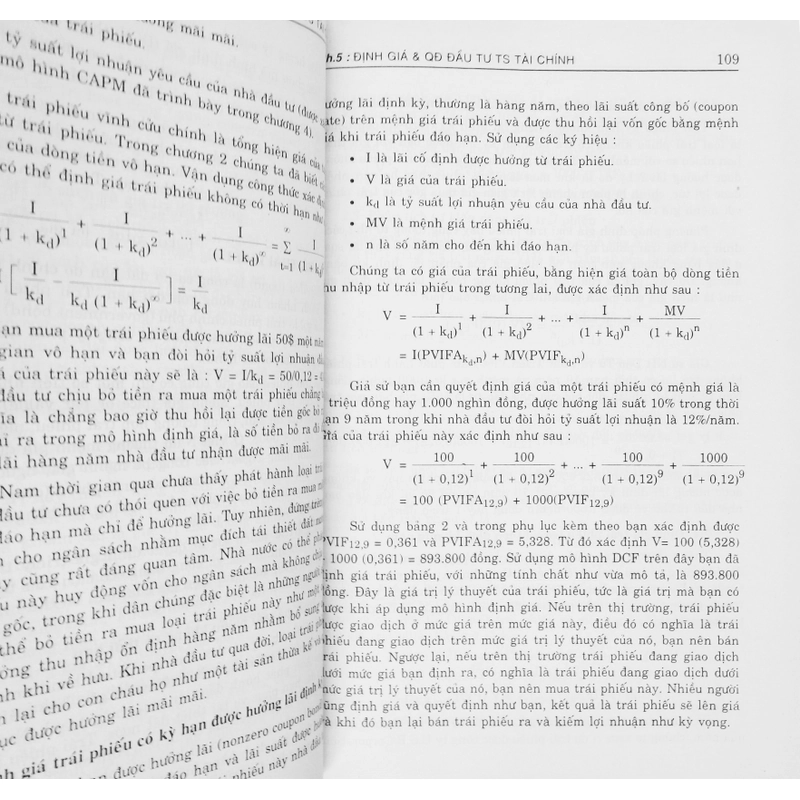 mãi mãi.
của trái phiếu.
tỷ suất lợi nhuận yêu cầu của nhà đầu tư (được
mô hình CAPM đã trình bày trong chương 4).
trái phiếu vĩnh cửu chính là tổng hiện giá của
từ trái phiếu. Trong chương 2 chúng ta đã biết
của dòng tiền vô hạn. Vận dụng công thức xác
có thể định giá trái phiếu không có thời hạn như
I/(1 + kd)^1 + I/(1 + kd)^2 + ... + I/(1 + kd)^∞ = Σ t=1 ∞ I/(1 + kd)
[I/kd - I/kd (1 + kd)^∞] = I/kd
mua một trái phiếu được hưởng lãi 50$ một năm
gian vô hạn và bạn đòi hỏi tỷ suất lợi nhuận
của trái phiếu này sẽ là : V = I/kd = 50/0,12 =
đầu tư chịu bỏ tiền ra mua một trái phiếu chẳng
là chẳng bao giờ thu hồi lại được tiền gốc bỏ
ra trong mô hình định giá, là số tiền bỏ ra để
lãi hàng năm nhà đầu tư nhận được mãi mãi.
Nam thời gian qua chưa thấy phát hành loại trái
đầu tư chưa có thói quen với việc bỏ tiền ra mua
đáo hạn mà chỉ để hưởng lãi. Tuy nhiên, đứng trên
cho ngân sách nhằm mục đích tái thiết đất
cũng rất đáng quan tâm. Nhà nước có thể
này huy động vốn cho ngân sách mà không
gốc, trong khi dân chúng đặc biệt là những người
thể bỏ tiền ra mua loại trái phiếu này như một
thu nhập ổn định hàng năm nhằm bổ sung
khi về hưu. Khi nhà đầu tư qua đời, loại trái
lại cho con cháu họ như một tài sản thừa kế và
được hưởng lãi mãi mãi.
giá trái phiếu có kỳ hạn được hưởng lãi định
được hưởng lãi (nonzero coupon
đáo hạn và lãi suất được
phiếu này nhà đầu
h.5 : ĐỊNH GIÁ & QĐ ĐẦU TƯ TS TÀI CHÍNH 109
ưởng lãi định kỳ, thường là hàng năm, theo lãi suất công bố (coupon
ate) trên mệnh giá trái phiếu và được thu hồi lại vốn gốc bằng mệnh
iá khi trái phiếu đáo hạn. Sử dụng các ký hiệu :
• I là lãi cố định được hưởng từ trái phiếu.
• V là giá của trái phiếu.
• kd là tỷ suất lợi nhuận yêu cầu của nhà đầu tư.
• MV là mệnh giá trái phiếu.
• n là số năm cho đến khi đáo hạn.
Chúng ta có giá của trái phiếu, bằng hiện giá toàn bộ dòng tiền
hu nhập từ trái phiếu trong tương lai, được xác định như sau :
V = I/(1 + kd)^1 + I/(1 + kd)^2 + ... + I/(1 + kd)^n + MV/(1 + kd)^n
= I(PVIFAkd,n) + MV(PVIFkd,n)
Giả sử bạn cần quyết định giá của một trái phiếu có mệnh giá là
triệu đồng hay 1.000 nghìn đồng, được hưởng lãi suất 10% trong thời
ạn 9 năm trong khi nhà đầu tư đòi hỏi tỷ suất lợi nhuận là 12%/năm.
Giá của trái phiếu này xác định như sau :
V = 100/(1 + 0,12)^1 + 100/(1 + 0,12)^2 + ... + 100/(1 + 0,12)^9 + 1000/(1 + 0,12)^9
= 100 (PVIFA12,9) + 1000(PVIF12,9)
Sử dụng bảng 2 và trong phụ lục kèm theo bạn xác định được
PVIF12,9 = 0,361 và PVIFA12,9 = 5,328. Từ đó xác định V= 100 (5,328)
1000 (0,361) = 893.800 đồng. Sử dụng mô hình DCF trên đây bạn đã
ịnh giá trái phiếu, với những tính chất như vừa mô tả, là 893.800
ồng. Đây là giá trị lý thuyết của trái phiếu, tức là giá trị mà bạn có
ược khi áp dụng mô hình định giá. Nếu trên thị trường, trái phiếu
ược giao dịch ở mức giá trên mức giá này, điều đó có nghĩa là trái
hiếu đang giao dịch trên mức giá trị lý thuyết của nó, bạn nên bán
rái phiếu. Ngược lại, nếu trên thị trường trái phiếu đang giao dịch
ưới mức giá bạn định ra, có nghĩa là trái phiếu đang giao dịch dưới
mức giá trị lý thuyết của nó, bạn nên mua trái phiếu này. Nhiều người
ũng định giá và quyết định như bạn, kết quả là trái phiếu sẽ lên giá
à khi đó bạn lại bán trái phiếu ra và kiếm lợi nhuận như kỳ vọng.